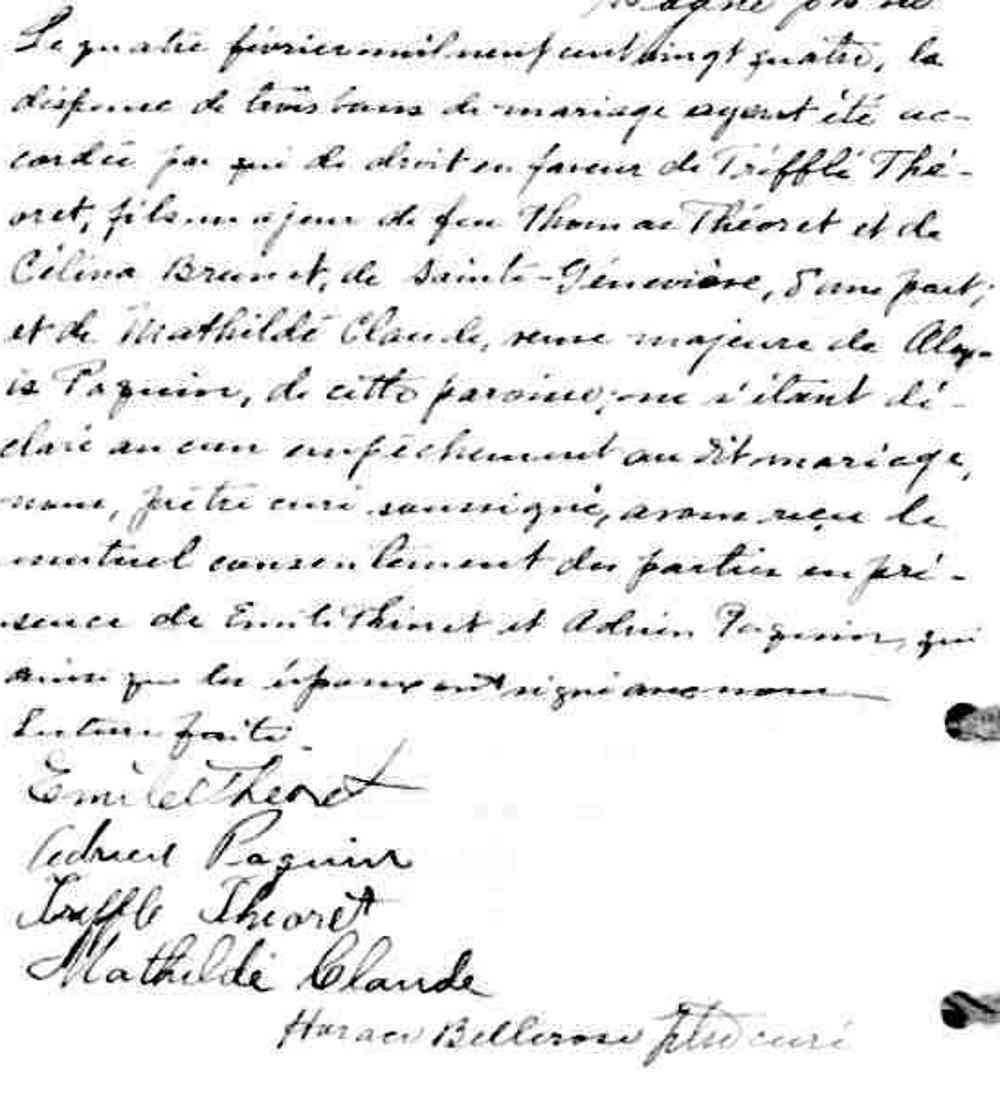 Le quatre février mil neuf cent vingt quatre, la
dispense de trois bans de mariage ayant été ac-
cordée par qui de droit en faveur de Trifflé Thé-
oret, fils majeur de feu Thomas Théoret et de
Célina Brunet, de Sainte-Géneviève, d'une part;
et de Mathilde Claude, veuve majeure de Aloy-
is Paquin, de cette paroisse; ne s'étant dé-
claré aucun empêchement au dit mariage,
nous, prêtre curé soussigné, avons reçu le
mutuel consentement des parties en pré-
sence de Emile Théoret et Adrien Paquin, qui
ainsi que les époux ont signé avec nous
Lecture faite.
Emile Theoret
Adrien Paquin
Triffle Theoret
Mathilde Claude
Horace Bellerose ptre curé